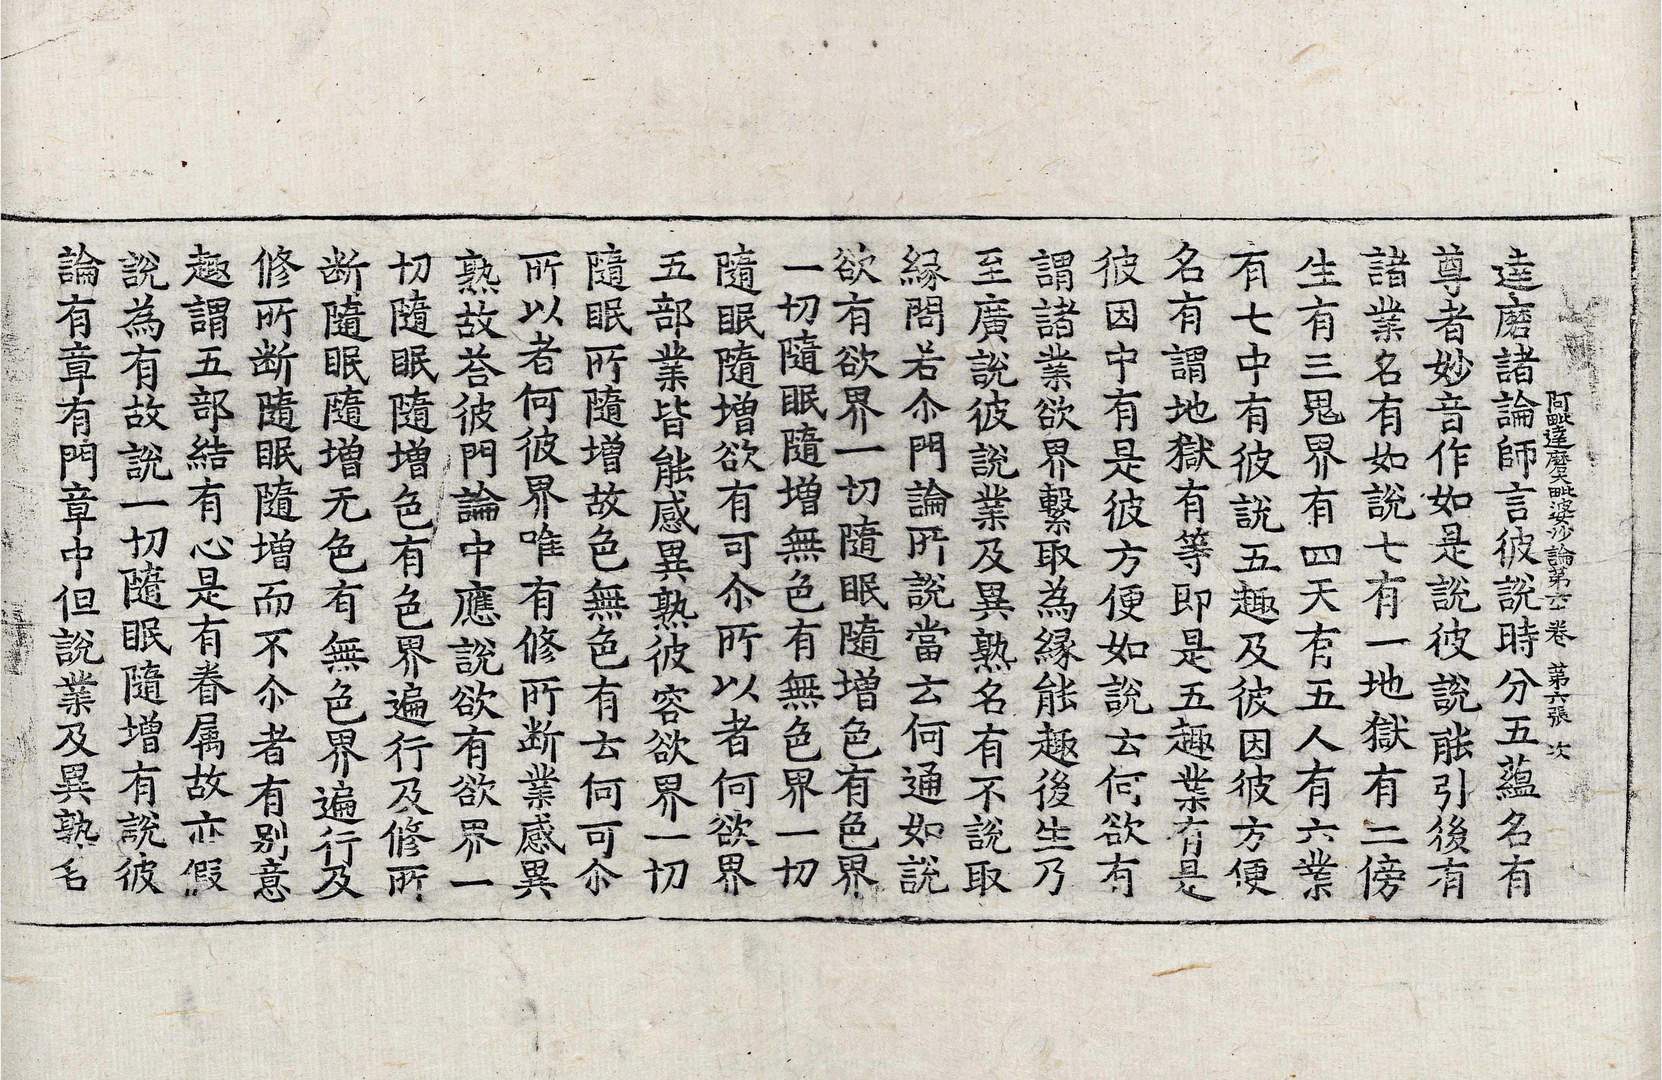 阿毗達磨大毗婆沙論第六十卷 第六張 次
達磨諸論師言彼說時分五蘊名有
尊者妙音作如是說彼說能引後有
諸業名有如說七有一地獄有二傍
生有三鬼界有四天有五人有六業
有七中有彼說五趣及彼因彼方便
名有謂地獄有等即是五趣業有是
彼因中有是彼方便如說云何欲有
謂諸業欲界繫取為緣能趣後生乃
至廣說彼說業及異熟名有不說取
緣問若尒門論所說當云何通如說
欲有欲界一切隨眠隨增色有色界
一切隨眠隨增無色有無色界一切
隨眠隨增欲有可尒所以者何欲界
五部業皆能感異熟彼容欲界一切
隨眠所隨增故色無色有云何可尒
所以者何彼界唯有修所断業感異
熟故荅彼門論中應說欲有欲界一
切隨眠隨增色有色界遍行及修所
断隨眠隨增无色有無色界遍行及
修所断隨眠隨增而不尒者有别意
趣謂五部結有心是有眷属故亦假
說為有故說一切隨眠隨增有說彼
論有章有門章中但說業及異熟名